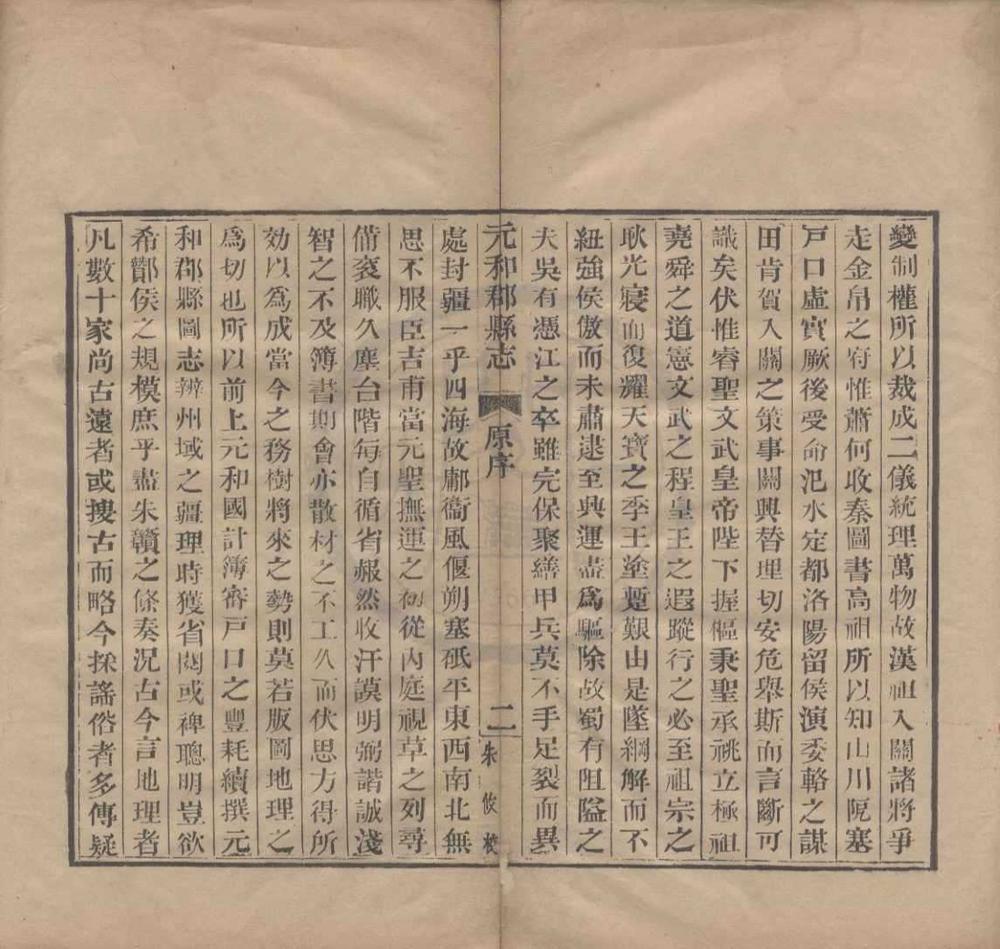 變制權所以裁成二儀統理萬物故漢祖入關諸將爭
走金帛之府惟蕭何收秦圖書高祖所以知山川阨塞
戸口虛實厥後受命汜水定都洛陽留侯演委輅之謀
田肯賀入關之策事關興替理切安危舉斯而言斷可
識矣伏惟睿聖文武皇帝陛下握樞秉聖承祧立極祖
堯舜之道憲文武之程皇王之遐蹤行之必至祖宗之
耿光寢而復耀天寶之季王塗蹔艱由是墜綱解而不
紐強侯傲而未肅逮至興運盡爲驅除故蜀有阻隘之
夫吳有憑江之卒雖完保聚繕甲兵莫不手足裂而異
元和郡縣志 原序 二 朱攸校
處封疆一乎四海故鄘衞風偃朔塞砥平東西南北無
思不服臣吉甫當元聖撫運之初從內庭視草之列尋
備袞職久塵台階每自循省赧然收汗謨明弼諧誠淺
智之不及簿書期會亦散材之不工久而伏思方得所
効以爲成當今之務樹將來之勢則莫若版圖地理之
爲切也所以前上元和國計簿審戸口之豐耗續撰元
和郡縣圖志辨州域之疆理時獲省閱或裨聰明豈欲
希酇侯之規模庶乎盡朱贛之條奏況古今言地理者
凡數十家尚古遠者或搜古而略今採謠俗者多傳疑